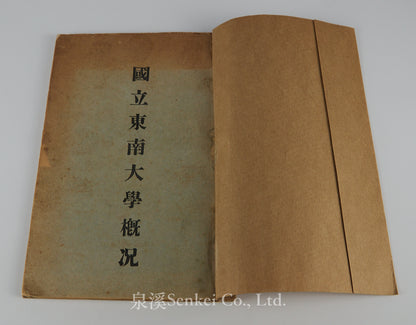 國立東南大學概況
泉溪Senkei Co., Ltd.